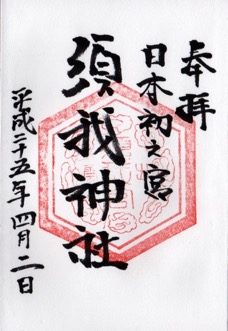 奉拝
日本初之宮
須我神社
平成二十五年四月二日